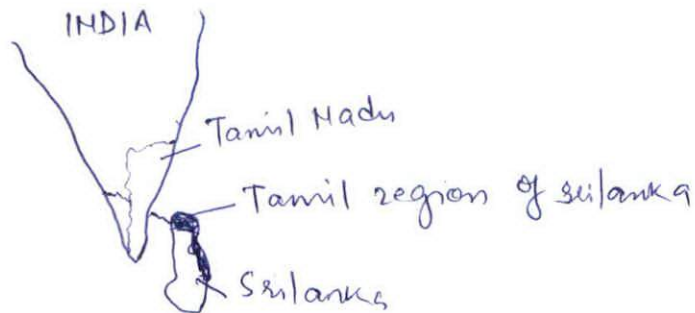 INDIA
Tamil Nadu
Tamil region of srilanka
Srilanka